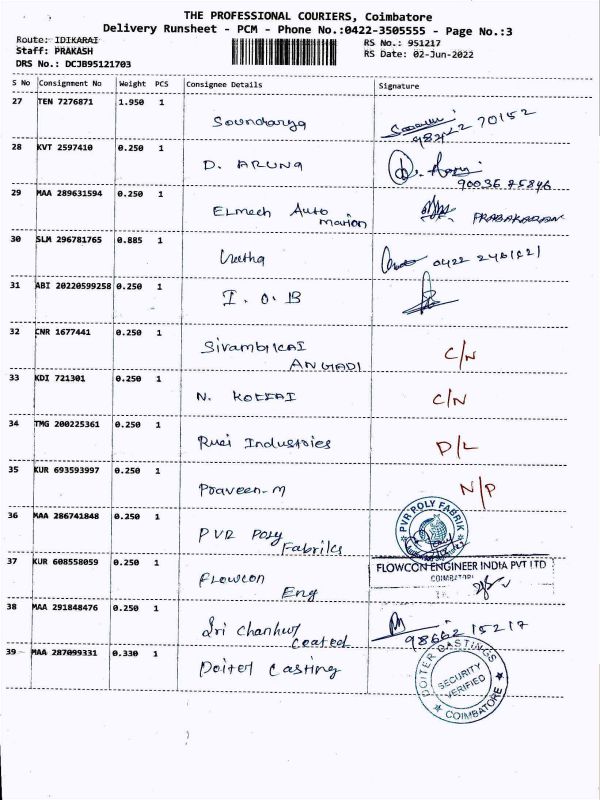 THE PROFESSIONAL COURIERS, Coimbatore
Delivery Runsheet - PCM - Phone No.:0422-3505555 - Page No.:3
Route: IDIKARAI
RS No.: 951217
Staff: PRAKASH
RS Date: 02-Jun-2022
DRS No.: DCJB95121703
S No Consignment No Weight PCS Consignee Details Signature
27 TEN 7276871 1.950 1
Soundarya
70152
28 KVT 2597410 0.250 1
D. ARUNA
29 MAA 289631594 0.250 1
ELmech Auto
mation
PRABAKARAN
30 SLM 296781765 0.885 1
0422
31 ABI 20220599258 0.250 1
I. O. B
32 CNR 1677441 0.250 1
ANGADI
C/N
33 KDI 721301 0.250 1
N.
C/N
34 TMG 200225361 0.250 1
Industries
D/L
35 KUR 693593997 0.250 1
Praveen-M
N/P
36 MAA 286741848 0.250 1
PVR Poly
PVR POLY FABRIK
37 KUR 608558059 0.250 1
Flowcon
Eng
FLOWCON ENGINEER INDIA PVT LTD
COIMBATORE
38 MAA 291848476 0.250 1
Sri
Coated
98662 15217
39 MAA 287099331 0.330 1
Doiter Casting
DOITER CASTINGS
SECURITY
VERIFIED
COIMBATORE